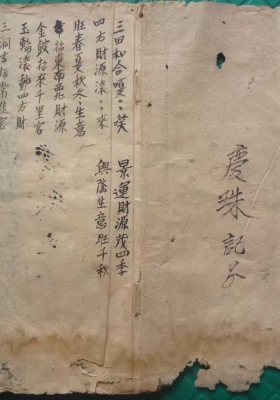 慶珠記子
景運財源茂四季
興隆生意旺千秋
三田和合雙〻笑
四方財源滾〻來
旺春夏秋冬生意
招東南西北財源
金鼓招來千里客
玉輪滾動四方財